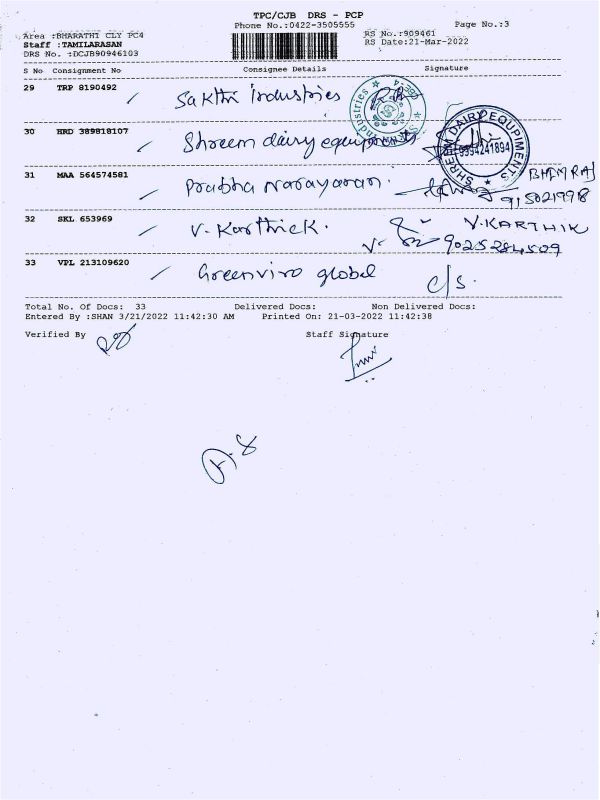 TPC/CJB DRS - PCP
Phone No.:0422-3505555 Page No.:3
Area :BHARATHI CLY PC4 RS No.:909461
Staff :TAMILARASAN RS Date:21-Mar-2022
DRS No. :DCJB90946103
S No Consignment No Consignee Details Signature
29 TRP 8190492 Sakthi Industries
Industries
30 HRD 389818107 Shreem dairy equipments
SHREEM DAIRY EQUIPMENTS
9994241894
31 MAA 564574581 Prabha Narayanan. BHIMRAJ
915021998
32 SKL 653969 V. Karthick. V. KARTHIK
9025284509
33 VPL 213109620 Greenviro global c/s.
Total No. Of Docs: 33 Delivered Docs: Non Delivered Docs:
Entered By :SHAN 3/21/2022 11:42:30 AM Printed On: 21-03-2022 11:42:38
Verified By Staff Signature